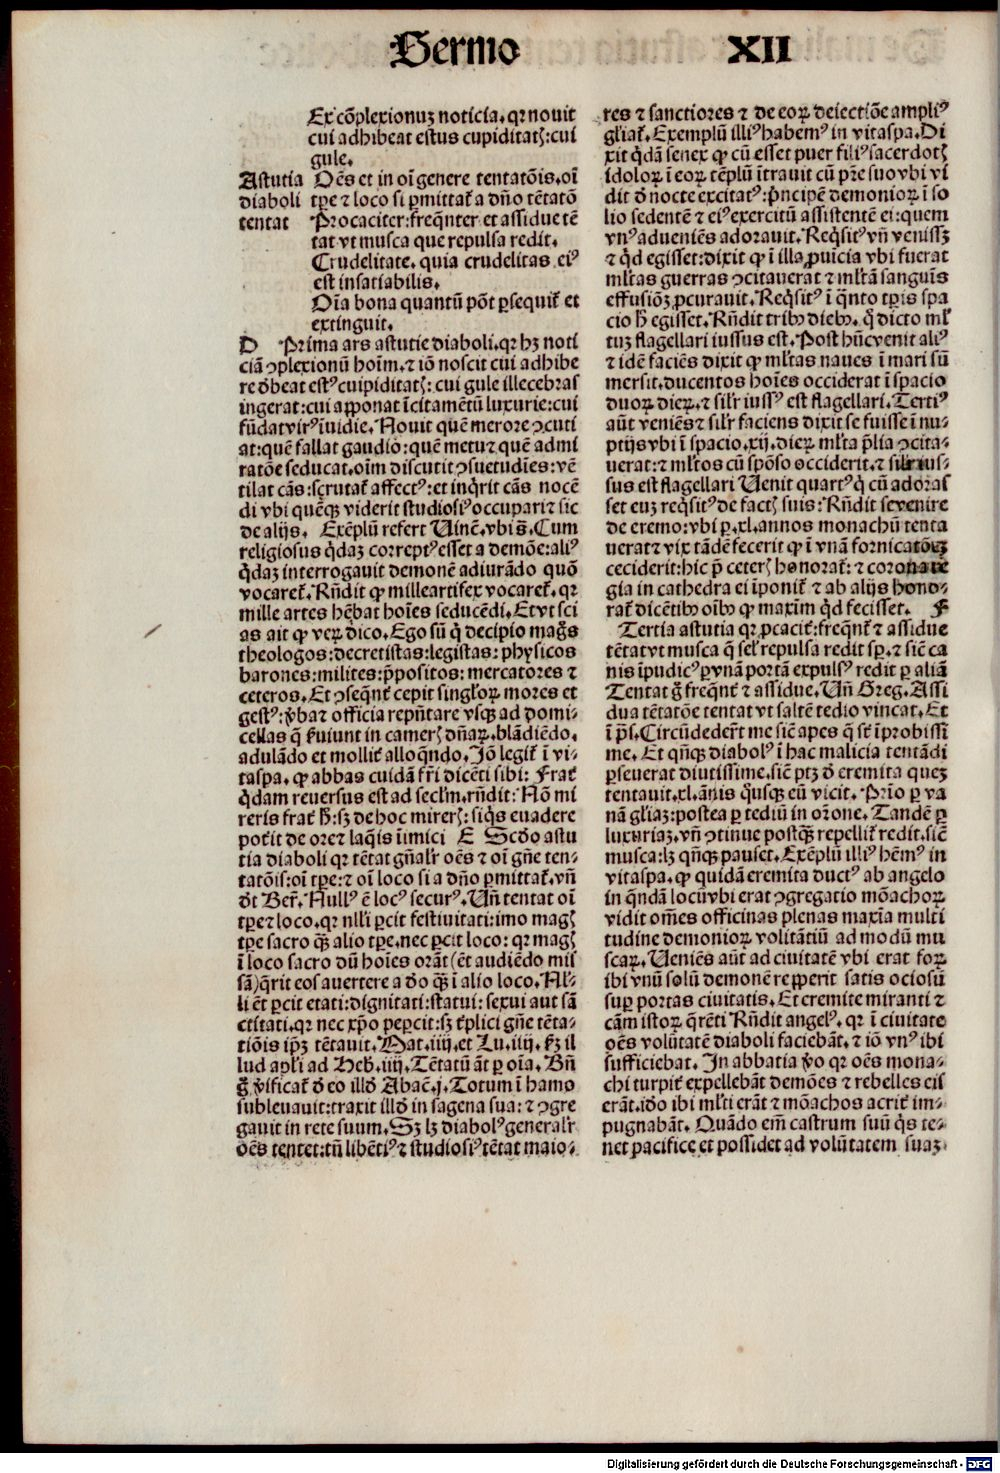 Sermo XII
Ex cōplexionuz noticia. qꝛ nouit
cui adhibeat estus cupiditatꝭ: cui
gule.
Astutia Oēs et in oī genere tentatōis. oī
diaboli tp̄e ⁊ loco si ꝑmittat̄ a dn̄o tētatō
tentat Procaciter: freq̄nter et assidue tē
tat vt musca que repulsa redit.
Crudelitate. quia crudelitas eiꝰ
est insatiabilis.
Oīa bona quantū pōt ꝑsequit̄ et
extinguit.
D Prima ars astutie diaboli. qꝛ hꝫ noti
ciā ꝯplexionū hoīm. ⁊ iō noscit cui adhibe
re dēbeat estꝰ cuipiditatꝭ: cui gule illecebras
ingerat: cui apponat īcitamētū luxurie: cui
fūdat virꝰ īuidie. Nouit quē merore ꝯcuti
at: quē fallat gaudio: quē metu ⁊ quē admi
ratōe seducat. oīm discutit ꝯsuetudīes: vē
tilat cās: scrutat̄ affectꝰ: et inq̄rit cās nocē
di vbi quēqꝫ viderit studiosiꝰ occupari ⁊ sic
de alijs. Exēplū refert Uincē. vbi s̄. Cum
religiosus q̇daꝫ correptꝰ esset a demōe: aliꝰ
q̇daꝫ interrogauit demonē adiurādo quō
vocaret̄. Rn̄dit ꝙ milleartifex vocaret̄. qꝛ
mille artes hēbat hoīes seducēdi. Et vt sci
as ait ꝙ veꝝ dico. Ego sū q̇ decipio maḡos
theologos: decretistas: legistas: physicos
barones: milites: p̄positos: mercatores ⁊
ceteros. Et ꝯseq̄nt̄ cepit singl̓oꝝ mores et
gestꝰ: v̄ba ⁊ officia rep̄ntare vsqꝫ ad domi-
cellas q̄ ẜuiunt in camerꝭ dn̄aꝝ. blādiēdo.
adulādo et mollit̄ alloq̄ndo. Jō legit̄ ī vi-
taspa. ꝙ abbas cuidā fr̄i dicēti sibi: Frat̄
q̇dam reuersus est ad secl̓m. rn̄dit: Nō mi
reris frat̄ h̄: sꝫ de hoc mirerꝭ: siq̇s euadere
potēit de ore ⁊ laq̄is īimici E Scd̓o astu
tia diaboli qꝛ tētat gn̄alr̓ oēs ⁊ oī gn̄e ten-
tatōis: oī tp̄e: ⁊ oī loco si a dn̄o ꝑmittat̄. vn̄
dt̄ Ber̄. Nullꝰ ē locꝰ securꝰ. Un̄ tentat oī
tp̄e ⁊ loco. qꝛ nll̓i ꝑcit festiuitati: imo magꝭ
tp̄e sacro qꝫ̄ alio tp̄e. nec ꝑcit loco: qꝛ magꝭ
ī loco sacro dū hoīes orāt (ēt audiēdo mis
sā) q̄rit eos auertere a dō qꝫ̄ ī alio loco. Al̓-
li ēt ꝑcit etati: dignitati: statui: sexui aut sā
ctitati. qꝛ nec xp̄o peꝑcit: sꝫ tͥplici gn̄e tēta-
tiōis ipꝫ tētauit. Mat. iiij. et Lu. iiij. ẜꝫ il
lud apl̓i ad Heb. iiij. Tētatū āt ꝑ oīa. Bn̄
g̊ v̓ificat̄ d̄ eo illd̓ Abac̄. j. Totum ī hamo
subleuauit: traxit illd̓ in sagena sua: ⁊ ꝯgre
gauit in rete suum. Sꝫ lꝫ diabolꝰ generalr̓
oēs tentet: tn̄ libētiꝰ ⁊ studiosiꝰ tētat maio-
res ⁊ sanctiores ⁊ de eoꝝ deiectiōe ampliꝰ
gl̓iat̄. Exemplū illiꝰ habemꝰ in vitaspa. Di
xit q̇dā senex ꝙ cū esset puer filiꝰ sacerdotꝭ
idoloꝝ ī eoꝝ tēplū ītrauit cū pr̄e suo vbi vi
dit d̄ nocte excitatꝰ: p̄ncipē demonioꝝ ī so
lio sedentē ⁊ eiꝰ exercitū assistentē ei: quem
vnꝰ adueniēs adorauit. Req̇sitꝰ vn̄ venissꝫ
⁊ q̇d egisset: dixit ꝙ ī illa ꝓuīcia vbi fuerat
ml̓tas guerras ꝯcitauerat ⁊ ml̓tā sanguīs
effusiōꝫ ꝓcurauit. Req̇sitꝰ ī q̇nto tp̄is spa
cio h̄ egisset. Rn̄dit tribꝰ diebꝰ. q̇ dicto ml̓
tuꝫ flagellari iussus est. Post hūc venit aliꝰ
⁊ idē faciēs dixit ꝙ ml̓tas naues ī mari sū
mersit. ducentos hoīes occiderat ī spacio
duoꝝ dieꝝ. ⁊ silr̓ iussꝰ est flagellari. Tertiꝰ
aūt veniēs ⁊ silr̓ faciens dixit se fuisse ī nu-
ptijs vbi ī spacio. xij. dieꝝ ml̓ta p̄lia ꝯcita-
uerat: ⁊ ml̓tos cū spōso occiderit. ⁊ silr̓ ius-
sus est flagellari Uenit quartꝰ q̇ cū adoras
set euꝫ req̇sitꝰ de factꝭ suis: Rn̄dit se venire
de eremo: vbi ꝑ. xl. annos monachū tenta
uerat ⁊ vix tādē fecerit ꝙ ī vnā fornicatōeꝫ
ceciderit: hic p̄ ceterꝭ honorat̄: ⁊ corona re
gia in cathedra ei īponit̄ ⁊ ab alijs hono-
rat̄ dicētibꝰ oībꝰ ꝙ maxim̄ q̇d fecisset. F
Tertia astutia qꝛ ꝓcacit̄: freq̄nt̄ ⁊ assidue
tētat vt musca q̄ sel̓ repulsa redit sꝑ. ⁊ siē ca
nis īpudicꝰ ꝑ vnā portā expulsꝰ redit ꝑ aliā
Tentat g̊ freq̄nt̄ ⁊ assidue. Un̄ Greg. Assi
dua tētatōe tentat vt saltē tedio vincat. Et
ī ps̄. Circūdeder̄t me siē apes q̄ st̄ īprobissi
me. Et qn̄qꝫ diabolꝰ ī hac malicia tentādi
ꝑseuerat diutissime. siē ptꝫ d̄ eremita queꝫ
tentauit. xl. ānis q̇usqꝫ eū vicit. Pr̄io ꝑ va
nā gl̓iaꝫ: postea ꝑ tediū in or̄one. Tandē ꝑ
luxuriaꝫ. vn̄ ꝯtinue postqꝫ̄ repellit̄ redit. siē
musca: lꝫ qn̄qꝫ pauset. Exēplū illiꝰ hēmꝰ in
vitaspa. ꝙ quidā eremita ductꝰ ab angelo
in q̄ndā locū vbi erat ꝯgregatio mōachoꝝ
vidit om̄es officinas plenas maxīa multi
tudine demonioꝝ volitātiū ad modū mu
scaꝝ. Ueniēs aūt ad ciuitatē vbi erat foꝝ
ibi vnū solū demonē repperit satis ociosū
suꝑ portas ciuitatis. Et eremite miranti ⁊
cām istoꝝ q̄rēti Rn̄dit angelꝰ. qꝛ ī ciuitate
oēs volūtatē diaboli faciebāt. ⁊ iō vnꝰ ibi
sufficiebat. In abbatia v̓o qꝛ oēs mona-
chi turpit̄ expellebāt demōes ⁊ rebelles eis
erāt. idō ibi ml̓ti erāt ⁊ mōachos acrit̄ im-
pugnabāt. Quādo em̄ castrum suū q̇s te-
net pacifice et possidet ad volūtatem suaꝫ
Digitalisierung gefördert durch die Deutsche Forschungsgemeinschaft - DFG